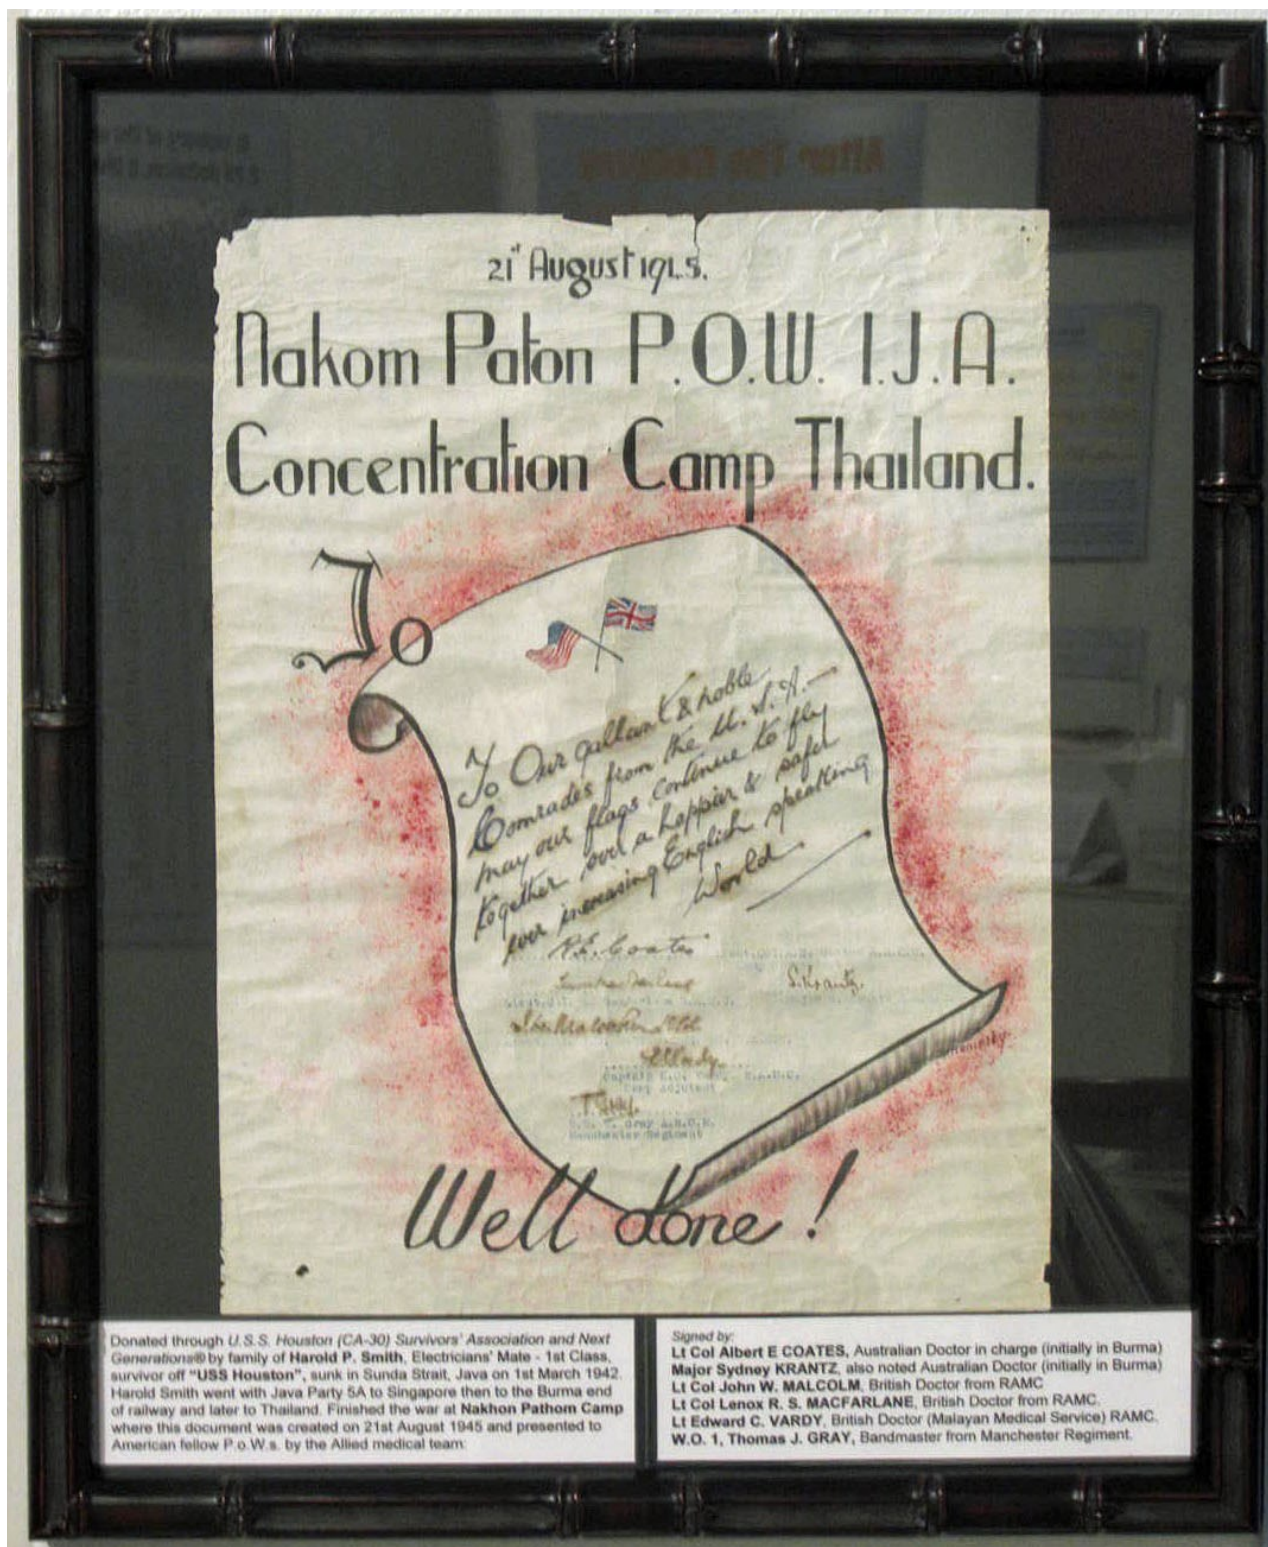 21st August 1945.
Nakom Paton P.O.W. I.J.A.
Concentration Camp Thailand.
To
To Our gallant & noble
Comrades from the U.S.A.—
may our flags continue to fly
together over a happier & safer
ever increasing English speaking
World
A.E. Coates
S. Krantz.
Captain
Camp Adjutant
T. Gray
Manchester Regiment
Well done!
Donated through U.S.S. Houston (CA-30) Survivors' Association and Next
Generations® by family of Harold P. Smith, Electricians' Mate - 1st Class,
survivor off "USS Houston", sunk in Sunda Strait, Java on 1st March 1942.
Harold Smith went with Java Party 5A to Singapore then to the Burma end
of railway and later to Thailand. Finished the war at Nakhon Pathom Camp
where this document was created on 21st August 1945 and presented to
American fellow P.o.W.s. by the Allied medical team.
Signed by:
Lt Col Albert E COATES, Australian Doctor in charge (initially in Burma)
Major Sydney KRANTZ, also noted Australian Doctor (initially in Burma)
Lt Col John W. MALCOLM, British Doctor from RAMC
Lt Col Lenox R. S. MACFARLANE, British Doctor from RAMC.
Lt Edward C. VARDY, British Doctor (Malayan Medical Service) RAMC.
W.O. 1, Thomas J. GRAY, Bandmaster from Manchester Regiment.